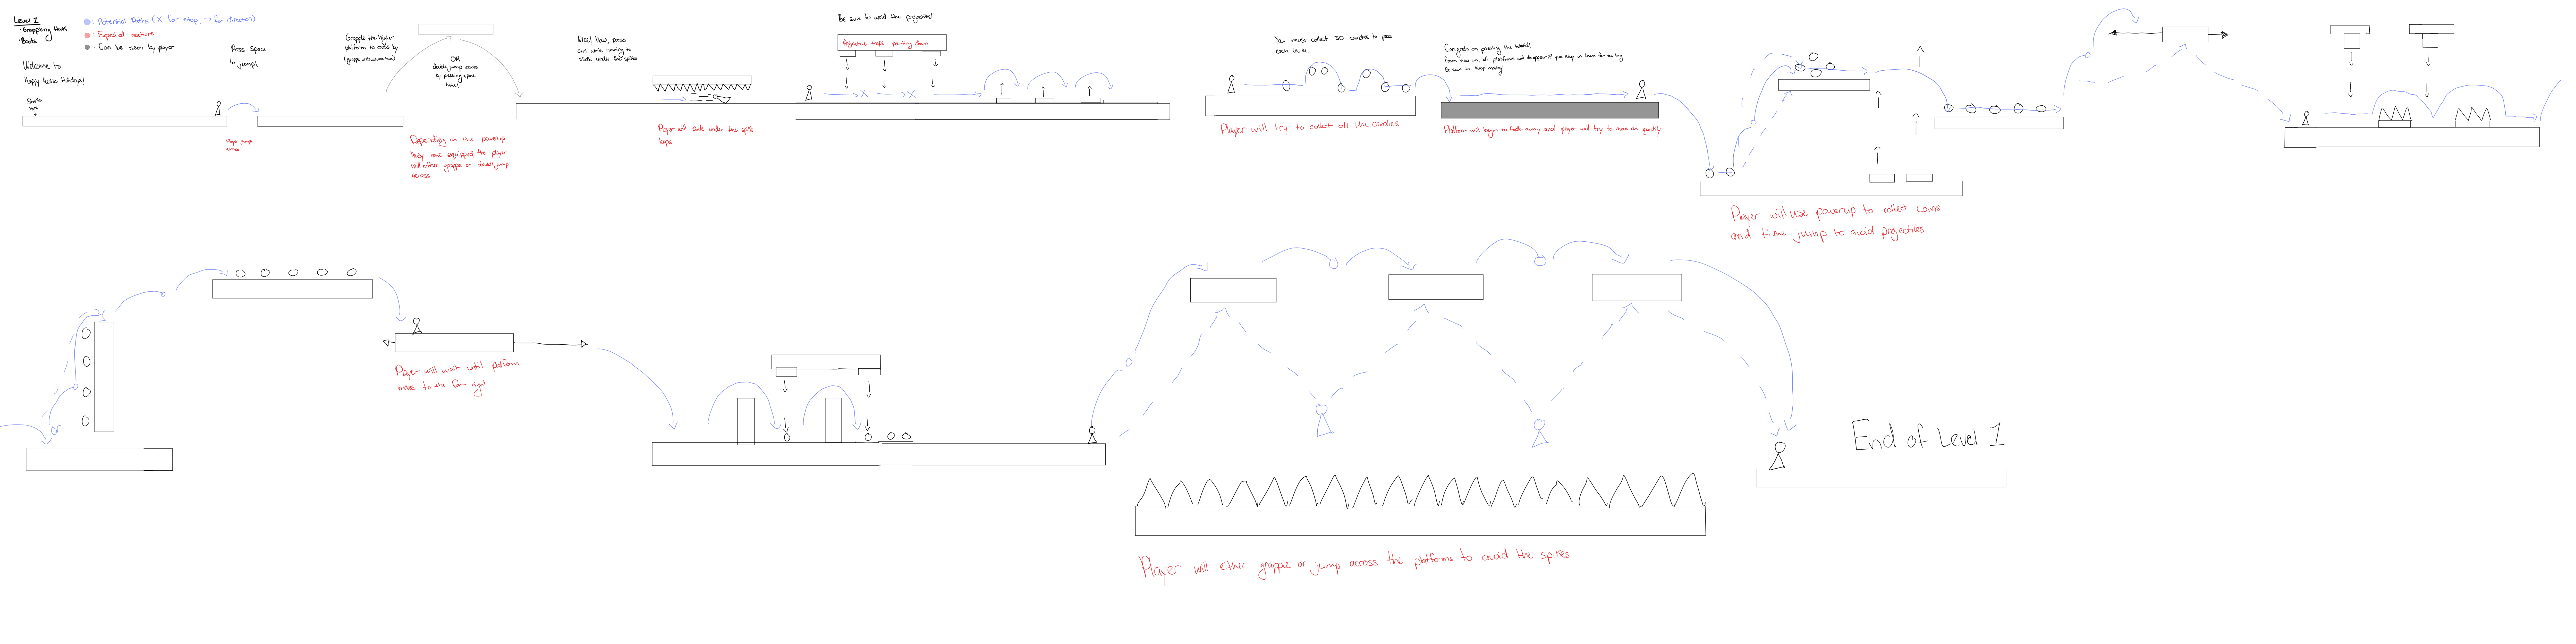 Level 1
• Grappling Hook
• Boots
: Potential Paths (X for stop, → for direction)
: Expected reactions
: Can be seen by player
Welcome to
Happy Hectic Holidays!
Starts
here
Press Space
to jump!
Player jumps
across
Grapple the higher
platform to cross by
(grapple instructions here)
OR
double jump across
by pressing space
twice!
Depending on the powerup
they have equipped the player
will either grapple or double jump
across
Nice! Now, press
ctrl while running to
slide under the spikes
Player will slide under the spike
traps
Be sure to avoid the projectiles!
Projectile traps pointing down
You must collect 30 candies to pass
each level.
Player will try to collect all the candies
Congrats on passing the tutorial!
From now on, all platforms will disappear if you stay on them for too long
Be sure to keep moving!
Platform will begin to fade away and player will try to move on quickly
Player will use powerup to collect coins
and time jump to avoid projectiles
or
Player will wait until platform
moves to the far right
Player will either grapple or jump across the platforms to avoid the spikes
End of Level 1